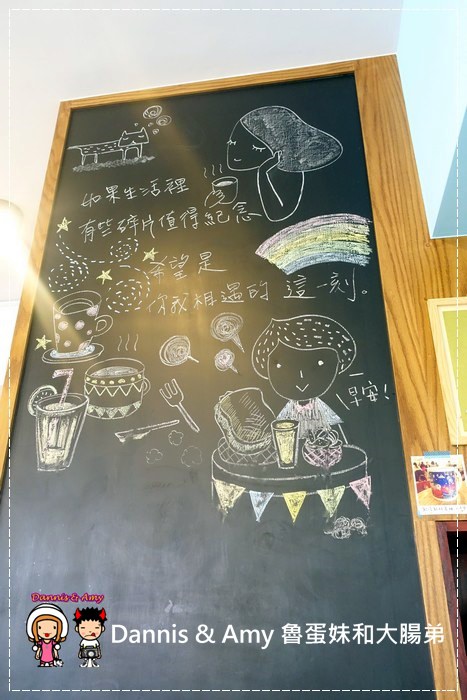 如果生活裡
有些碎片值得紀念
希望是
你我相遇的 這一刻。
早安!
Dannis & Amy
Dannis & Amy 魯蛋妹和大腸弟